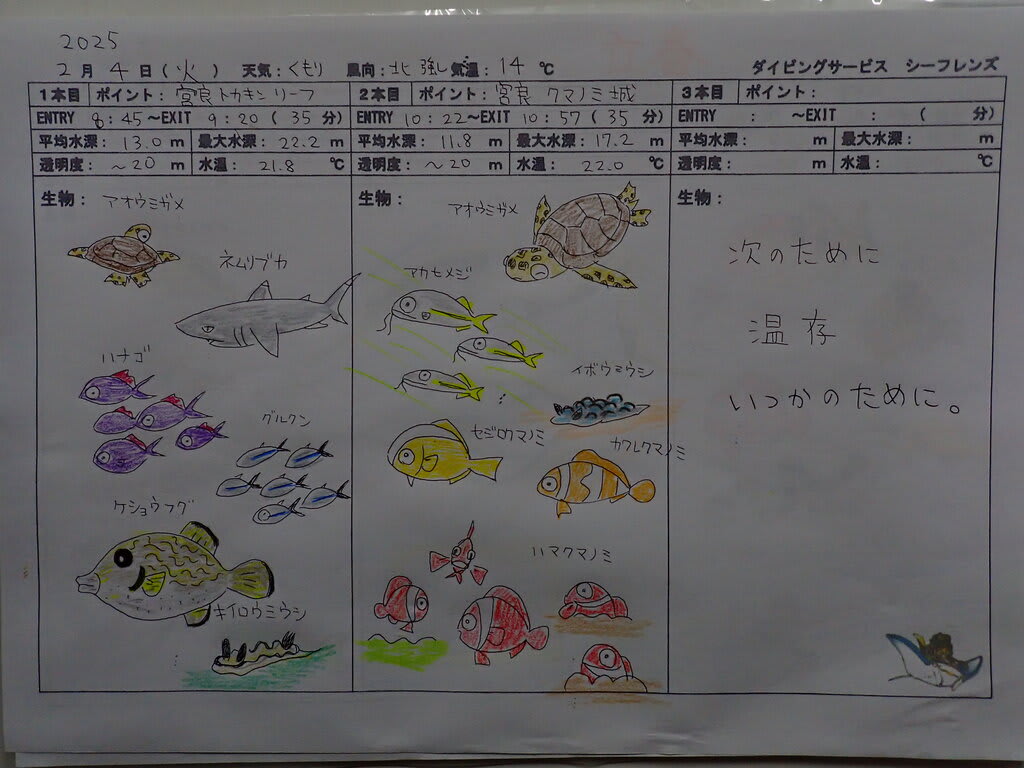 2025
2月 4日(火) 天気:くもり 風向:北 強し 気温:14℃ ダイビングサービス シーフレンズ
1本目 ポイント:宮良トカキンリーフ
ENTRY 8:45~EXIT 9:20(35分)
平均水深:13.0m 最大水深:22.2m
透明度:~20m 水温:21.8℃
生物:アオウミガメ
ネムリブカ
ハナゴ
グルクン
ケショウフグ
キイロウミウシ
2本目 ポイント:宮良 クマノミ城
ENTRY 10:22~EXIT 10:57(35分)
平均水深:11.8m 最大水深:17.2m
透明度:~20m 水温:22.0℃
生物:アオウミガメ
アカヒメジ
イボウミウシ
セジロクマノミ
カクレクマノミ
ハマクマノミ
3本目 ポイント:
ENTRY : ~EXIT : ( 分)
平均水深: m 最大水深: m
透明度: m 水温: ℃
生物:
次のために
温存
いつかのために。